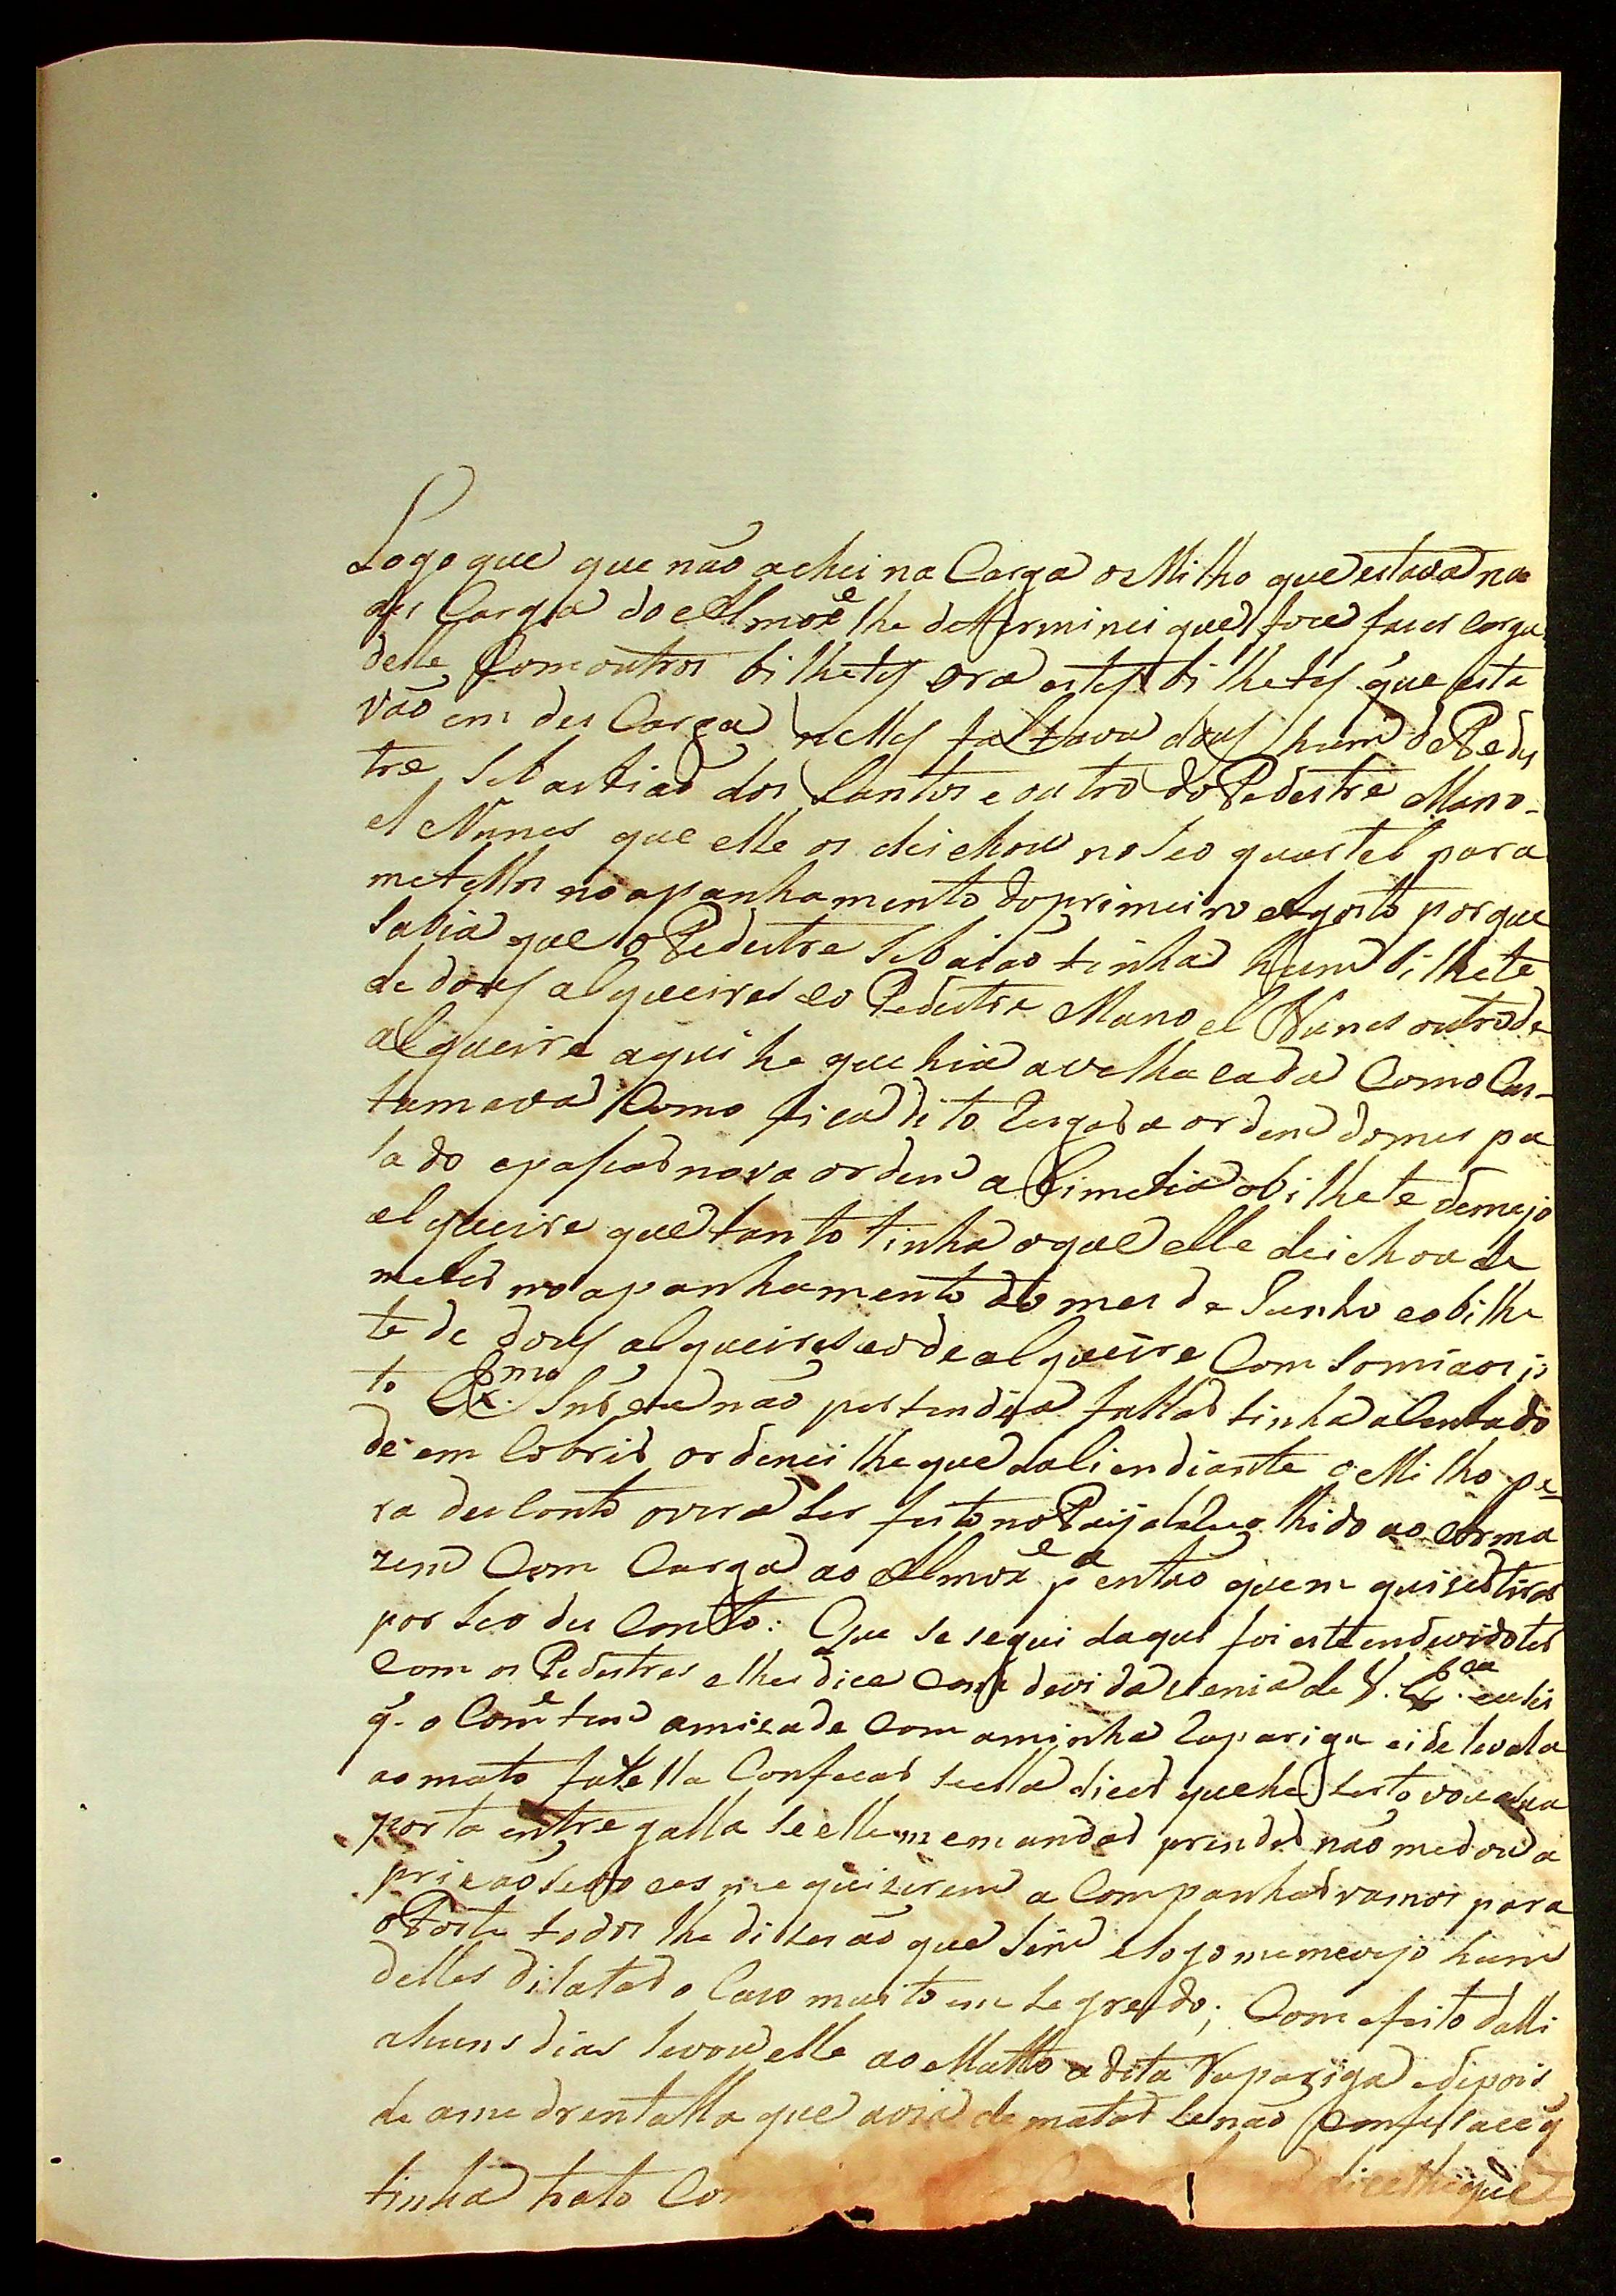 Logo que que não achei na Carga o Milho que estava na
des Carga do Almoxe lhe detterminei que foce fazer carga
delle Com outros bilhetes ora estes bilhetes que esta
vão em des Carga nelles faltava dous hum do Pedes
tre Sebastião dos Santos e outro do Pedestre Mano-
el Nunes que elle os deichou no seo quartel para
metellos no apanhamento do primeiro Agosto porque
sabia que o Pedestre Sebaiao tinha hum bilhete
de dous alqueires eo Pedestre Mano el Nunes outro de
alqueire aqui he que hia avelhacada Como Cus-
tumava Como fica dito Rezgar a ordem do mes pa
sado epasar nova ordem a li metia obilhete de mejo
alqueire que tanto tinha oque elle deichou de
meter no apanhamento do mes de Junho eobilhe
te de dous alqueires eo de alqueire Com somia os is
to Exmo Snr eu não pertendia fallar tinha a Sentado
de em Cobrir ordenei lhe que dali en diante o Milho pe
ra des Conto overa ser feito no Paijol Recolhido ao Arma
zem Com Carga ao Almoxe pa então quem quizer tirar
por seo des Conto: Que se segui daqui foi este endevido ter
Com os Pedestres e lhes dice Com a devida venia de V. Exca eu sei
q. o Come tem amizade Com aminha Rapariga ei de levala
ao mato fatella Confecar se ella dicer que he serto vou a sua
porta entregalla se elle me mandar prender não me dou a
prizão se voces me quizerem a Companhar vamos para
o Forte todos lhe diserão que sim elogo me mevejo hum
delles dilatar o Caso muito em Segredo; Com efeito dalli
ahuns dias levou elle ao Matto a dita Rapariga edepois
de amedrentalla que avia de matar se não Confesace q
tinha trato Com dice lhe que